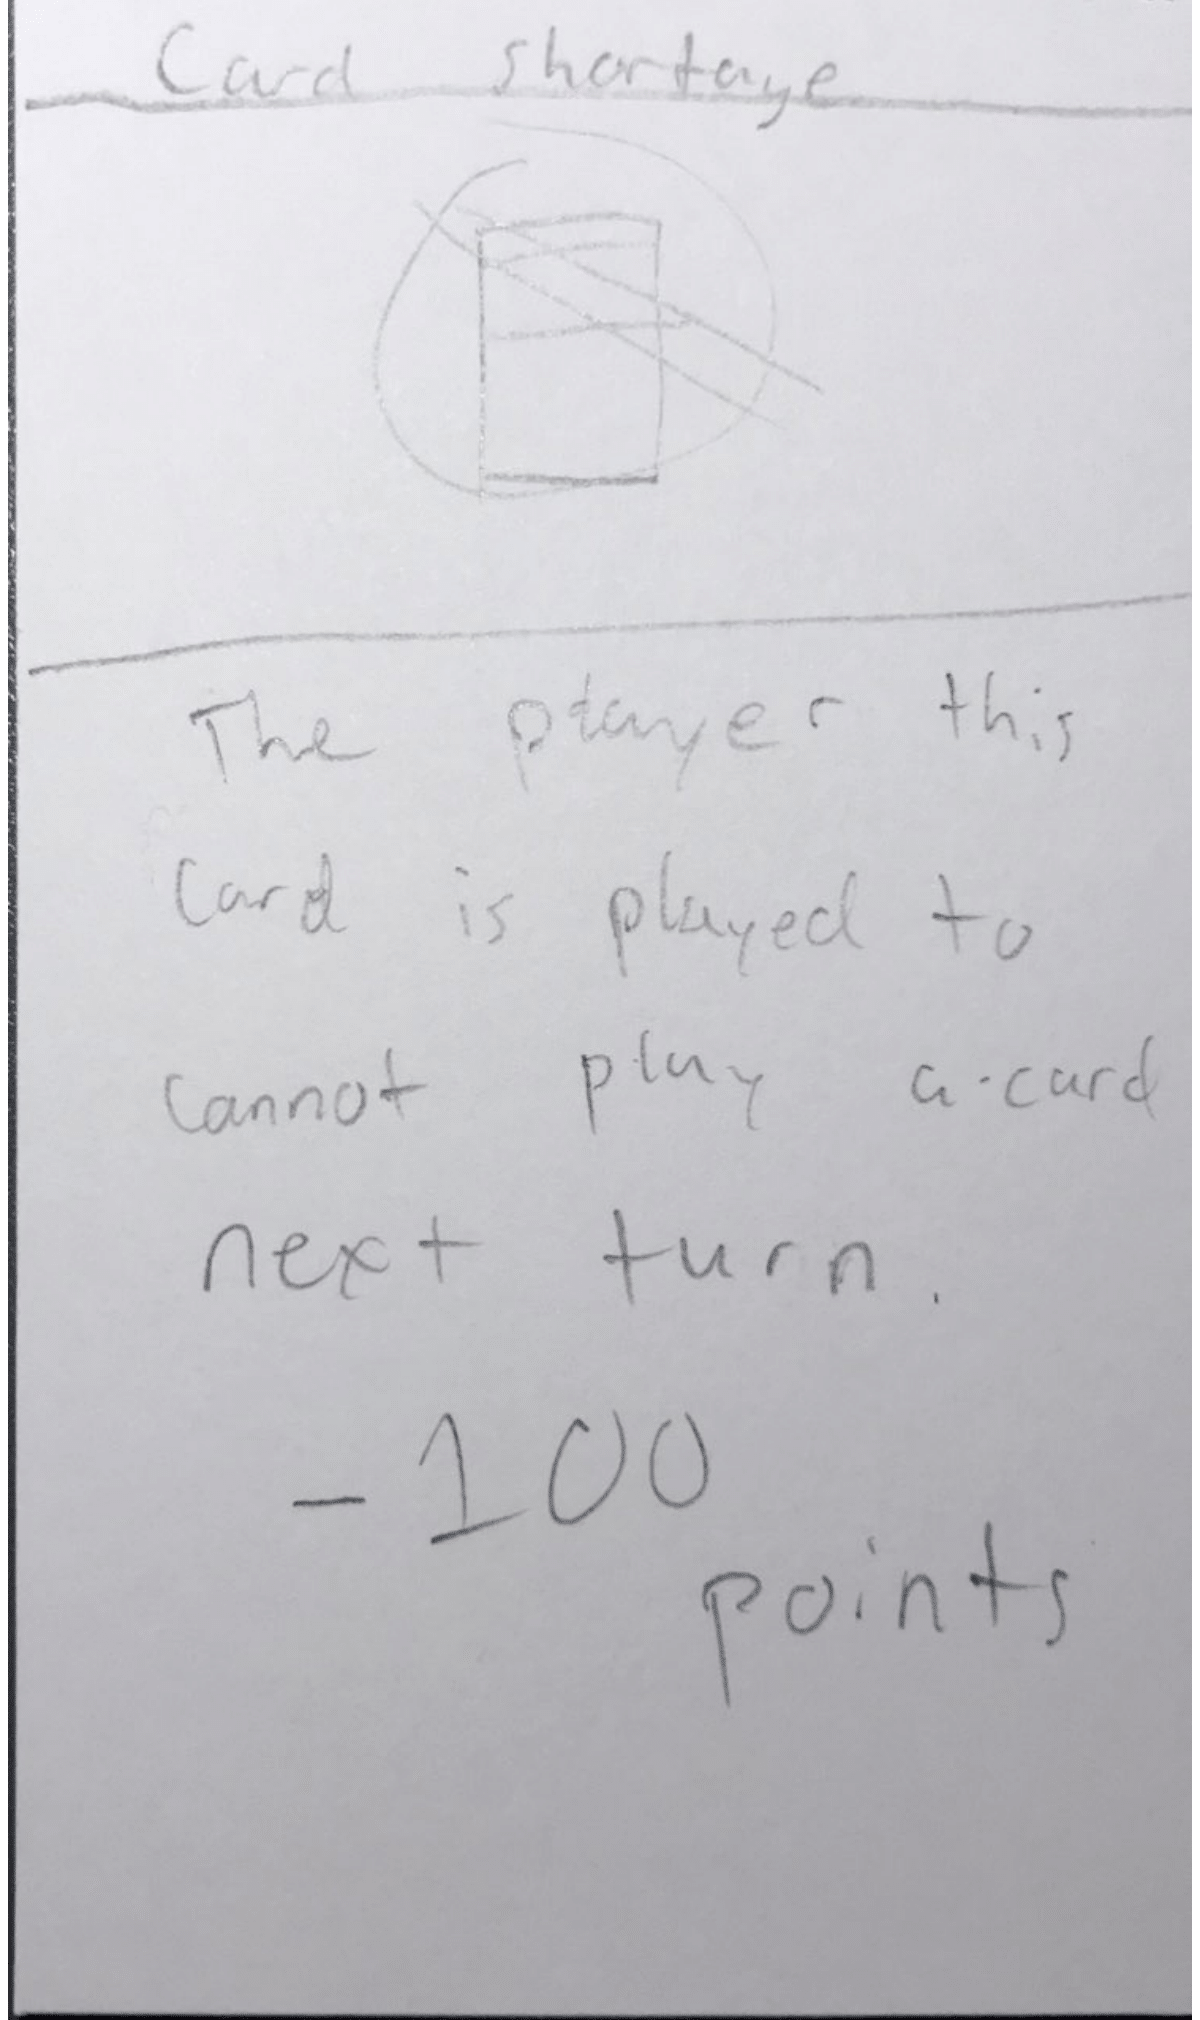 Card shortage
The player this
card is played to
cannot play a card
next turn.
-100
points